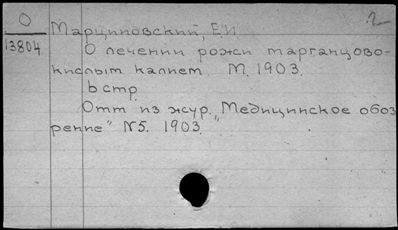 О
13804
2
Марциновский, Е.И.
О лечении рожи марганцово-
кислым калием М. 1903.
6 стр.
Отт. из жур. „Медицинское обоз
рение" №5. 1903.